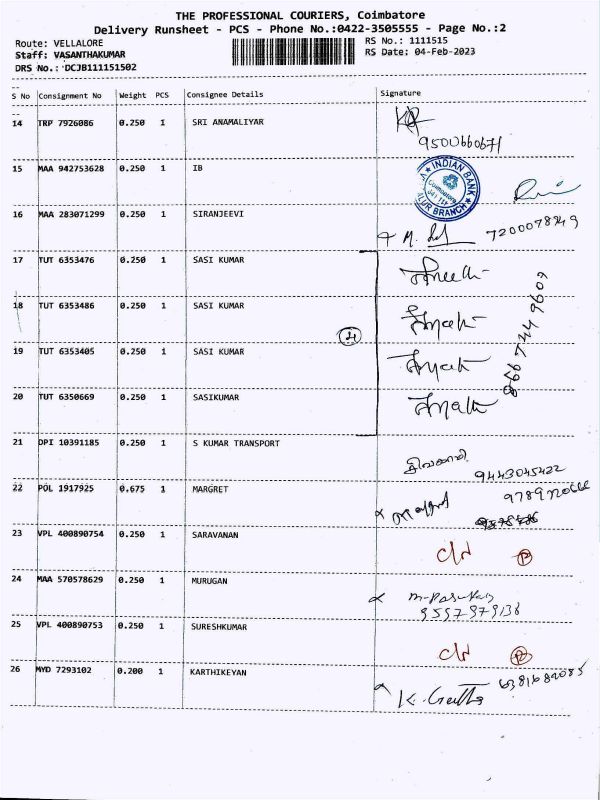 THE PROFESSIONAL COURIERS, Coimbatore
Delivery Runsheet - PCS - Phone No.:0422-3505555 - Page No.:2
Route: VELLALORE
RS No.: 1111515
Staff: VASANTHAKUMAR
RS Date: 04-Feb-2023
DRS No.: DCJB111151502
S No Consignment No Weight PCS Consignee Details Signature
14 TRP 7926086 0.250 1 SRI ANAMALIYAR
9500660671
15 MAA 942753628 0.250 1 IB
INDIAN BANK
16 MAA 283071299 0.250 1 SIRANJEEVI
17 TUT 6353476 0.250 1 SASI KUMAR
18 TUT 6353486 0.250 1 SASI KUMAR
8667449609
19 TUT 6353405 0.250 1 SASI KUMAR
20 TUT 6350669 0.250 1 SASIKUMAR
21 DPI 10391185 0.250 1 S KUMAR TRANSPORT
9443045422
22 POL 1917925 0.675 1 MARGRET
23 VPL 400890754 0.250 1 SARAVANAN
24 MAA 570578629 0.250 1 MURUGAN
9597979138
25 VPL 400890753 0.250 1 SURESHKUMAR
26 MYD 7293102 0.200 1 KARTHIKEYAN